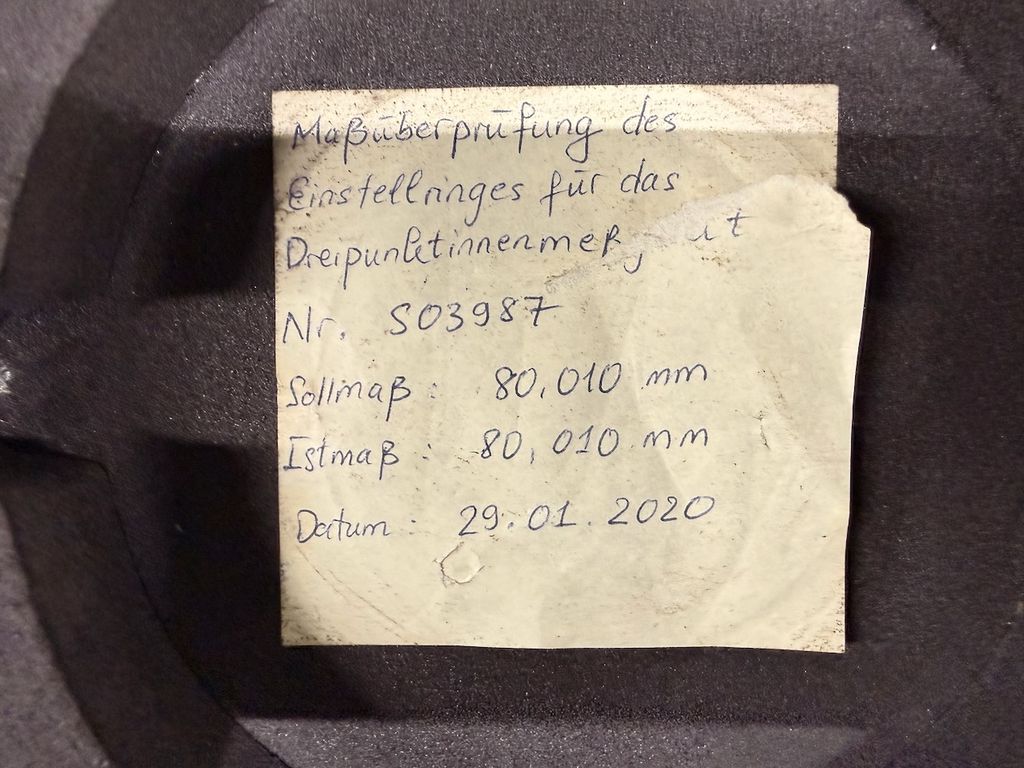 Maßüberprüfung des
Einstellringes für das
Nr. S03987
Sollmaß : 80,010 mm
Istmaß : 80,010 mm
Datum : 29.01.2020